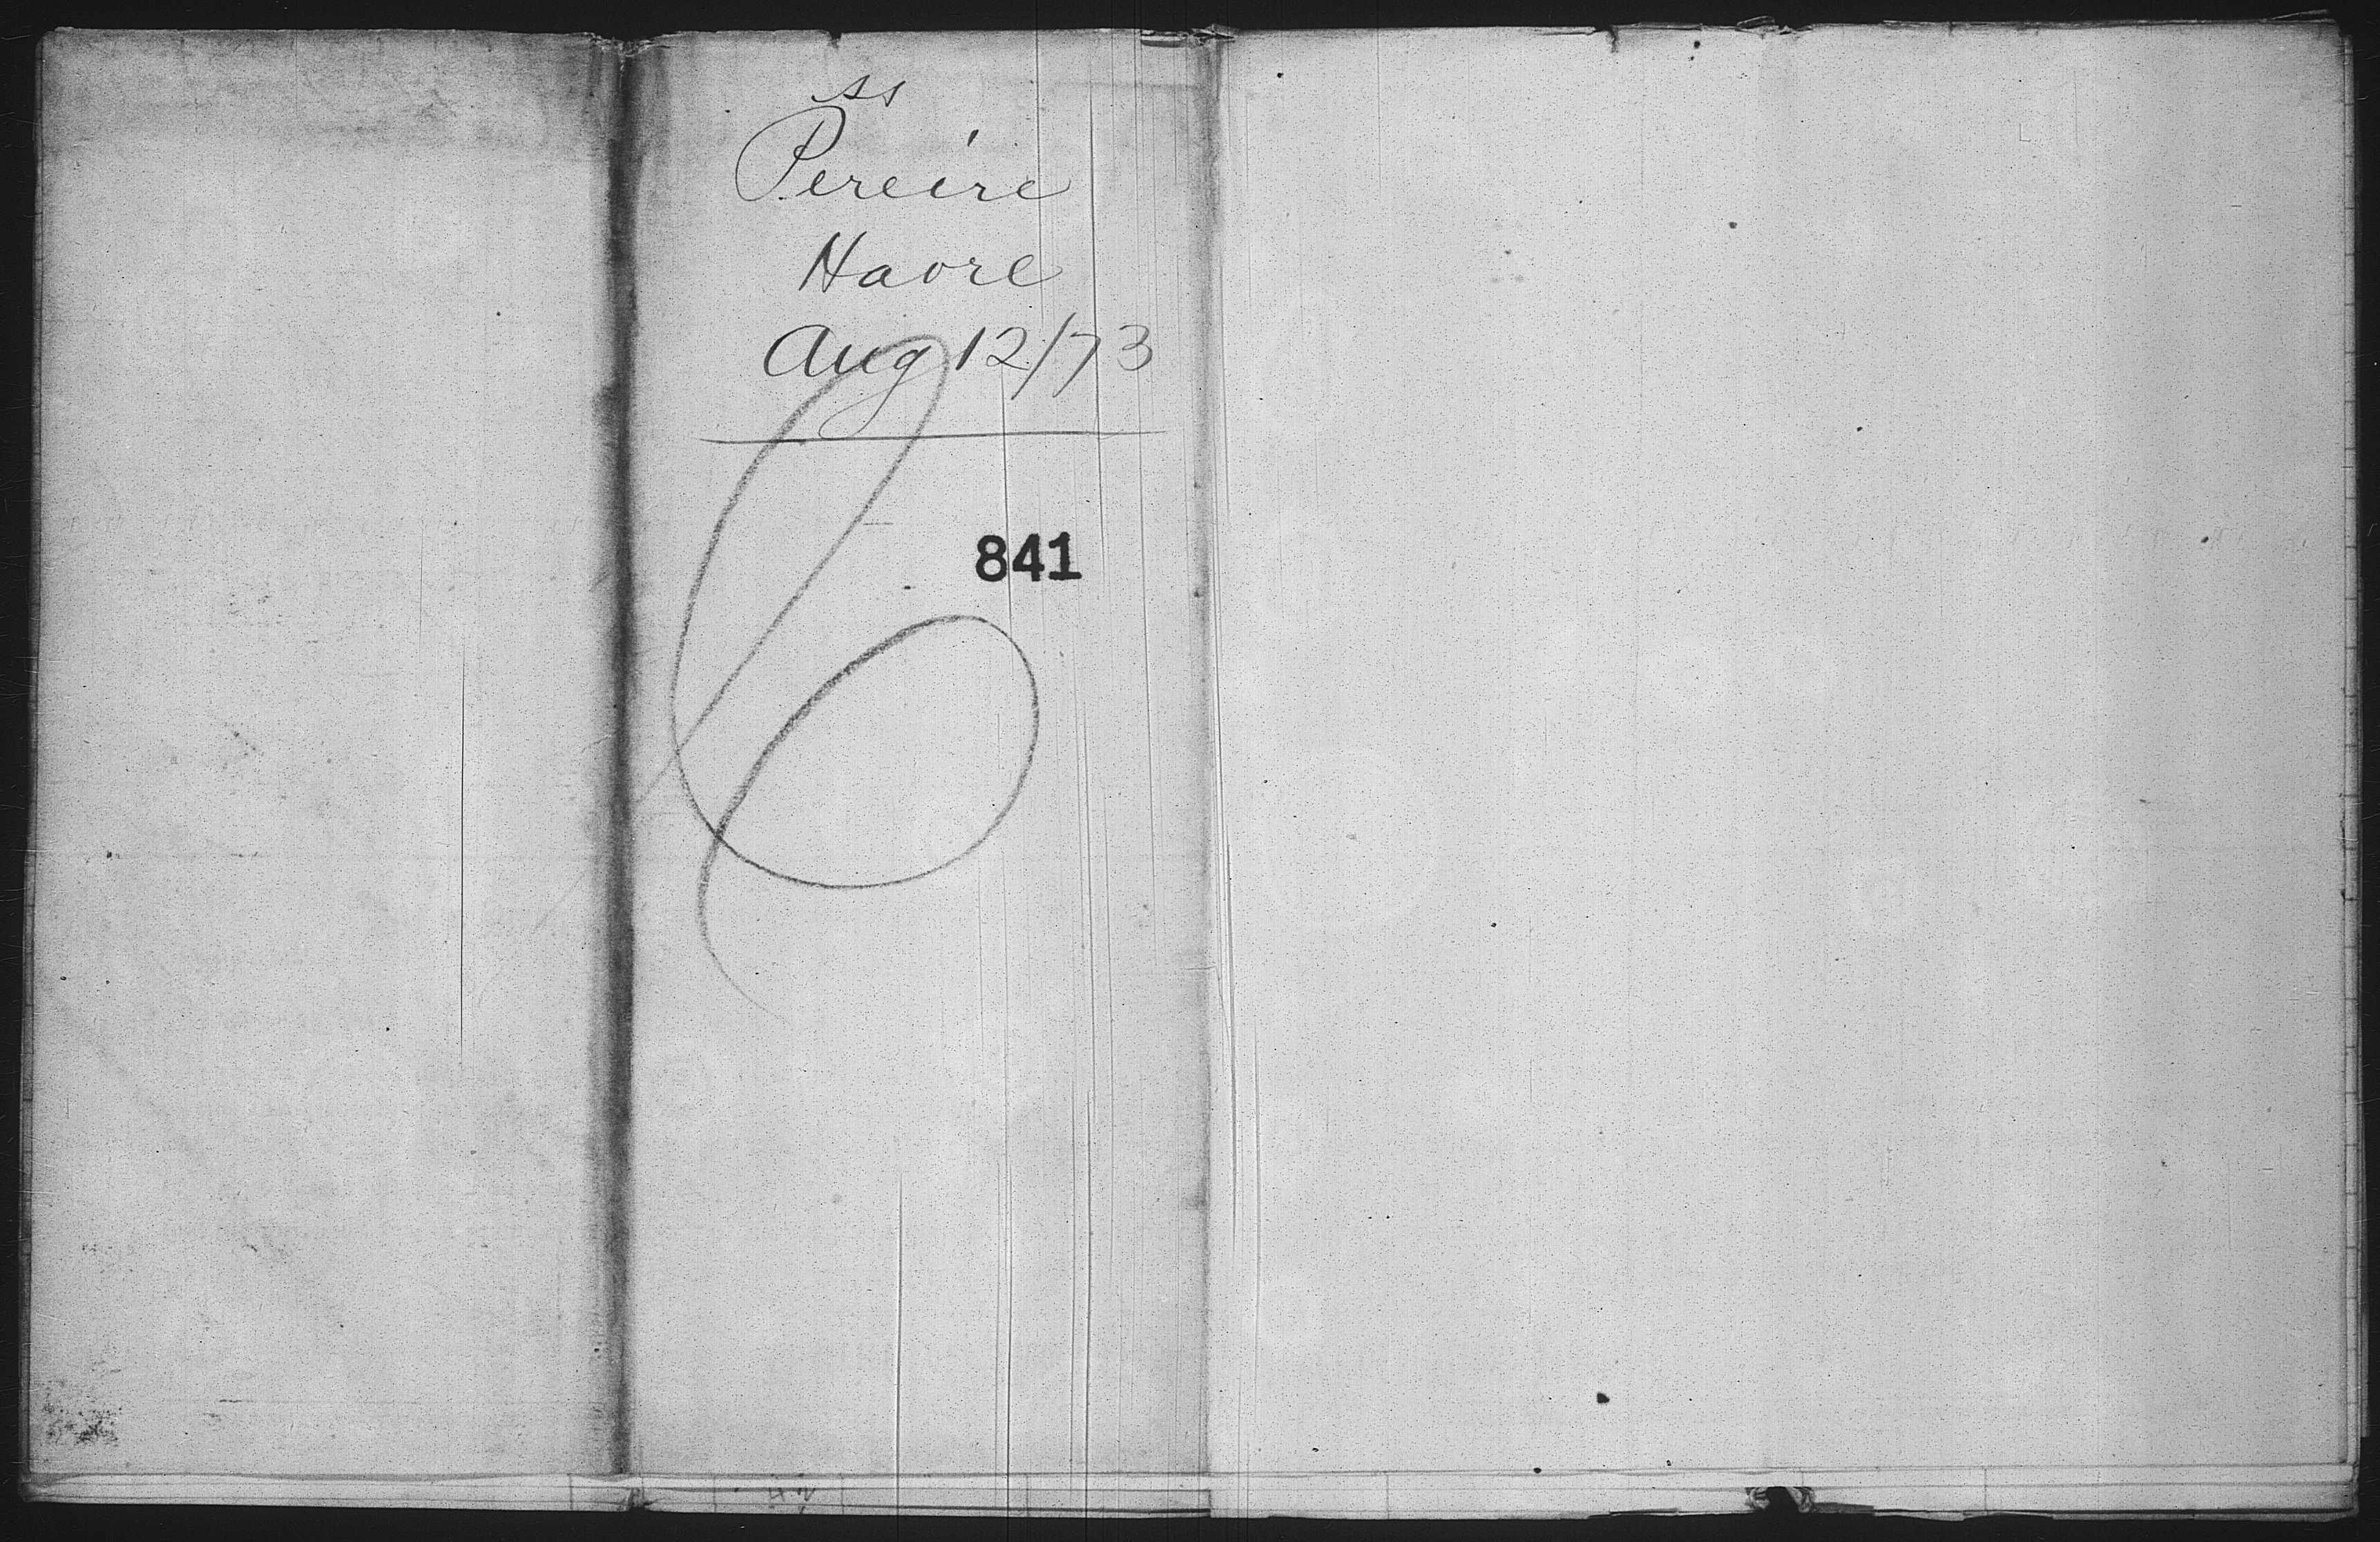 ss
Pereire
Havre
Aug 12/73
841